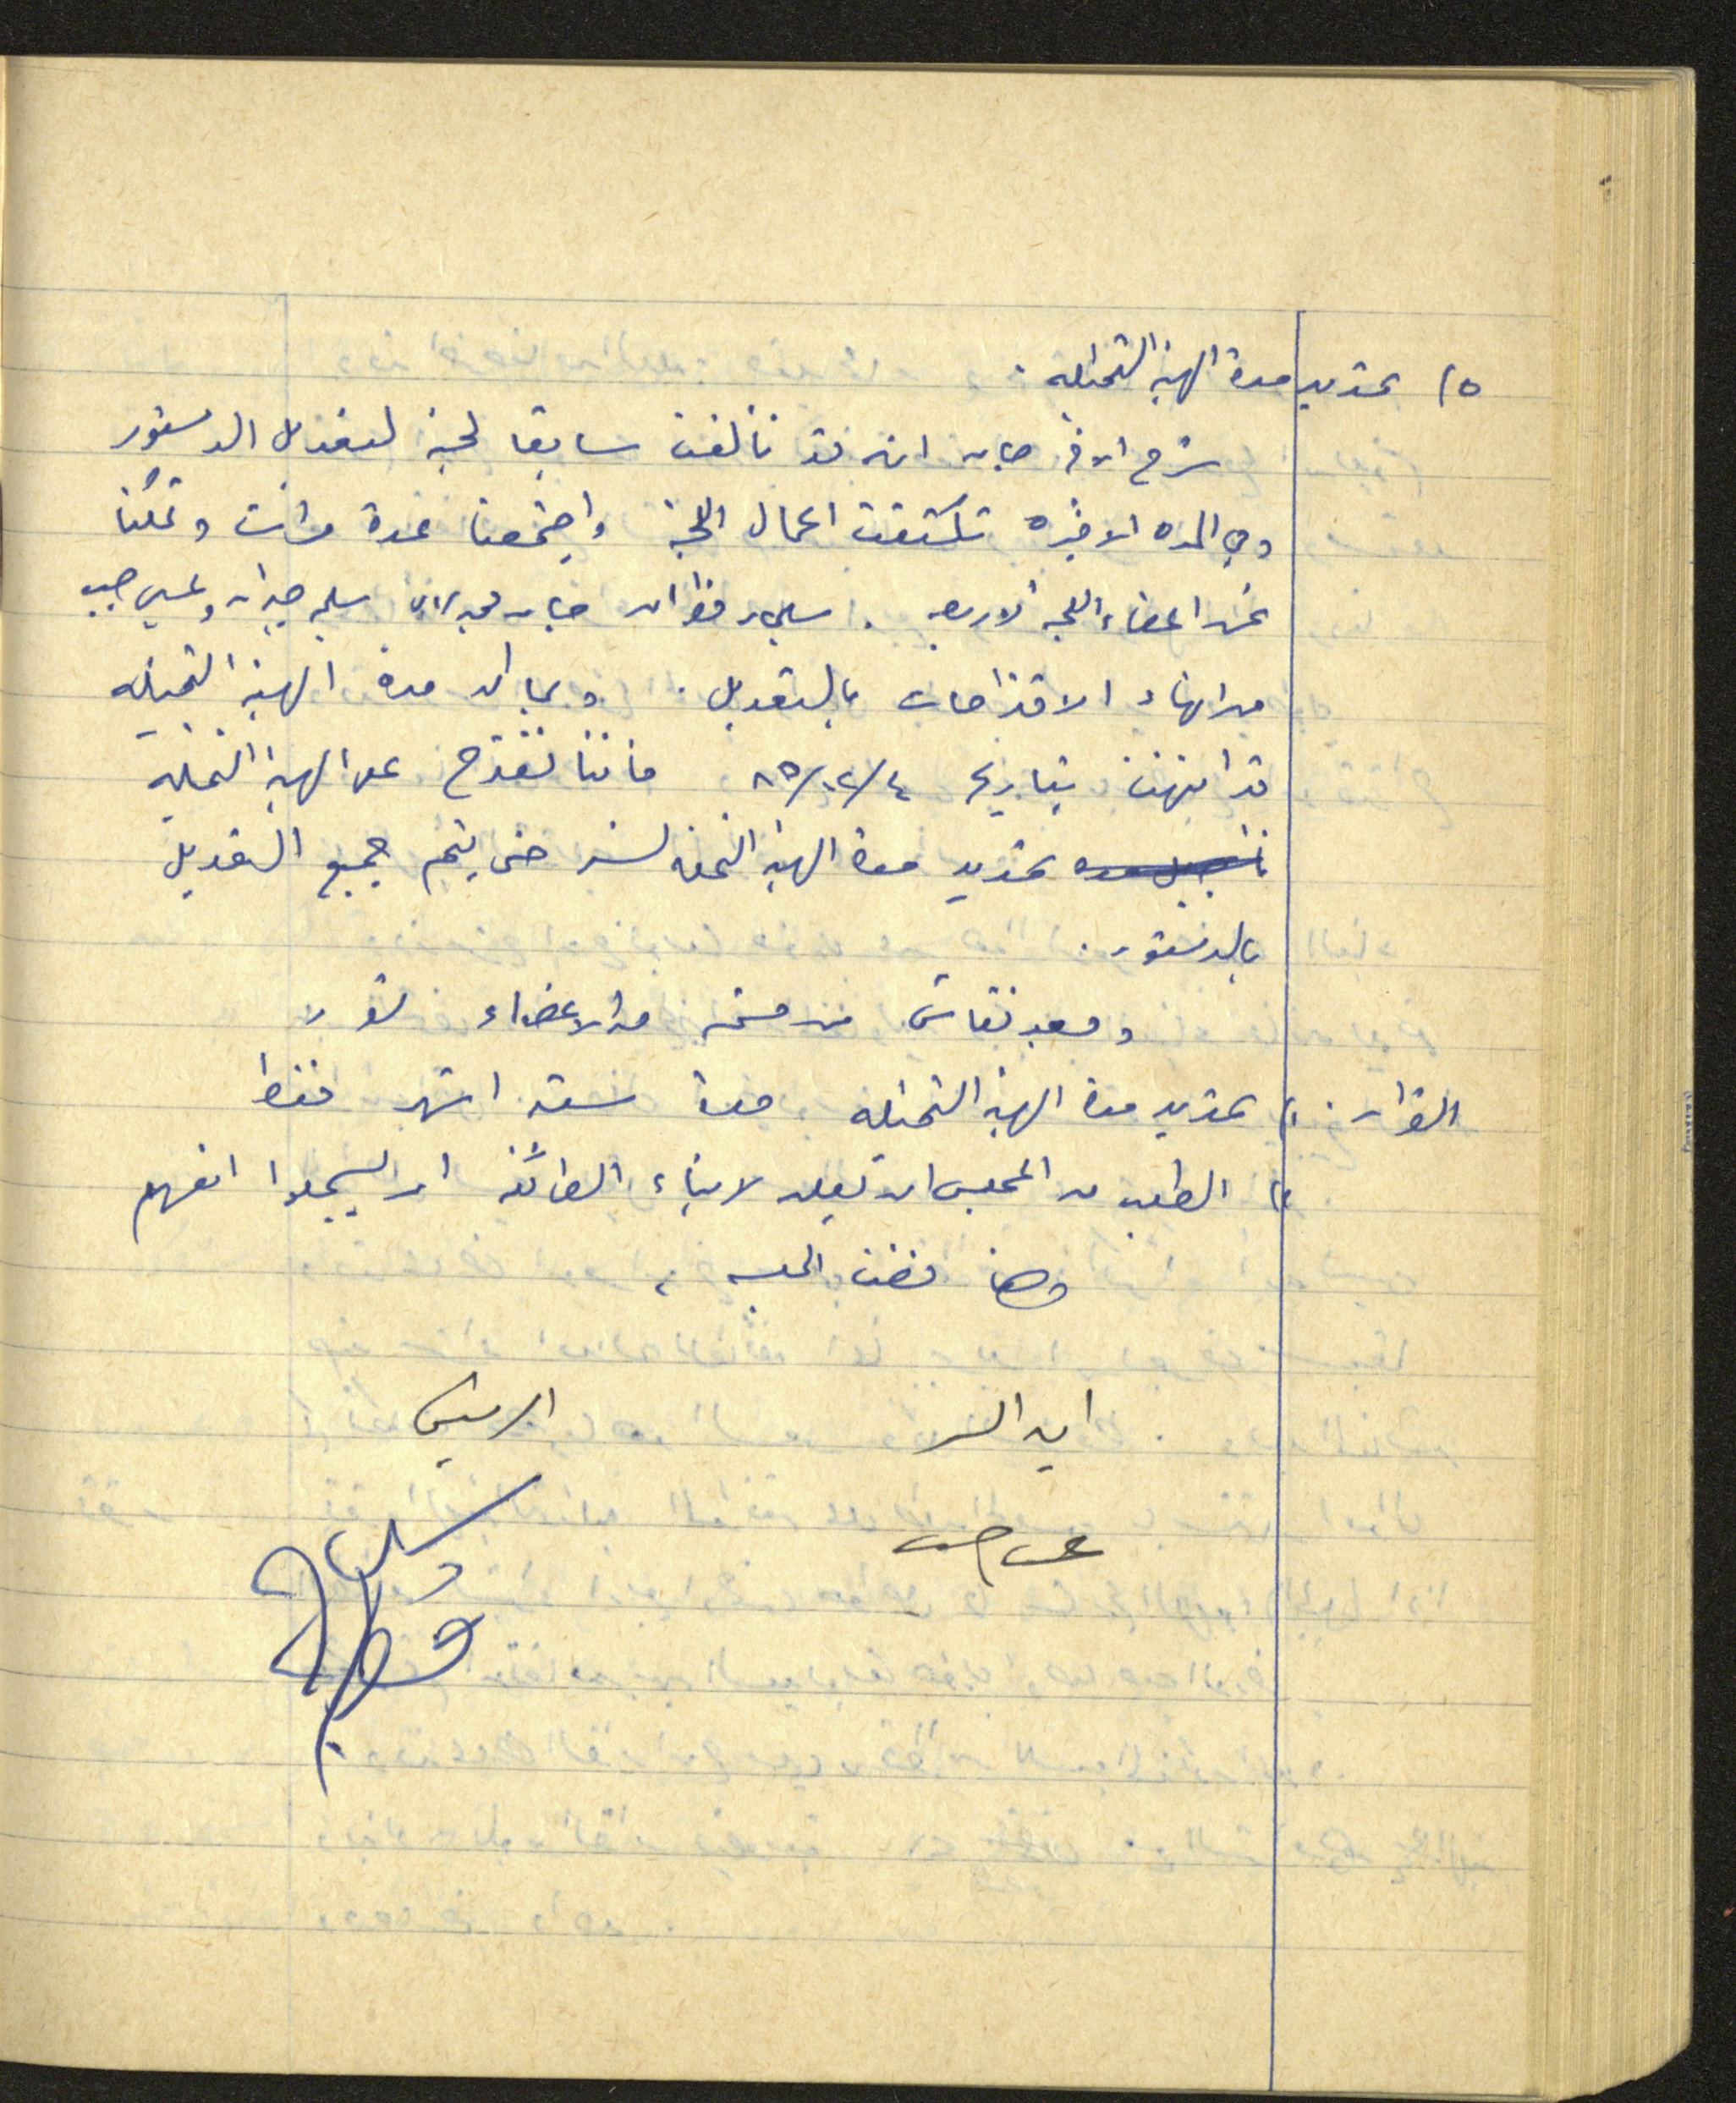 ٥) تمديد مدة الهيئة التمثيلية :
شرح الاخ جابر انه قد تألفت سابقا لجنة لتعديل الدستور
وفي المده الاخيره تكثفت اعمال اللجنة واجتمعنا عدة مرات وتمكنا
نحن اعضاء اللجنة الاربعه . سليم جبران وعيسى حبيب
من انهاء الاقتراحات بالتعديل . وبما ان مدة الهيئة التمثيليه
قد انتهت بتاريخ ٤/١٢/٨٥ فاننا نقترح على الهيئة التمثيلية
تمديد مدة الهيئة التمثيليه لسنه حتى يتم جميع التعديل
بالدستور .
وبعد نقاش من الاعضاء تقرر
القرار : ١) تمديد مدة الهيئة التمثيله مدة ستة اشهر فقط
٢) الطلب من المجلس ان يعلن لابناء الطائفة ان يسجلوا انفسهم
وهنا فضت الجلسه ،
امين السر الرئيس